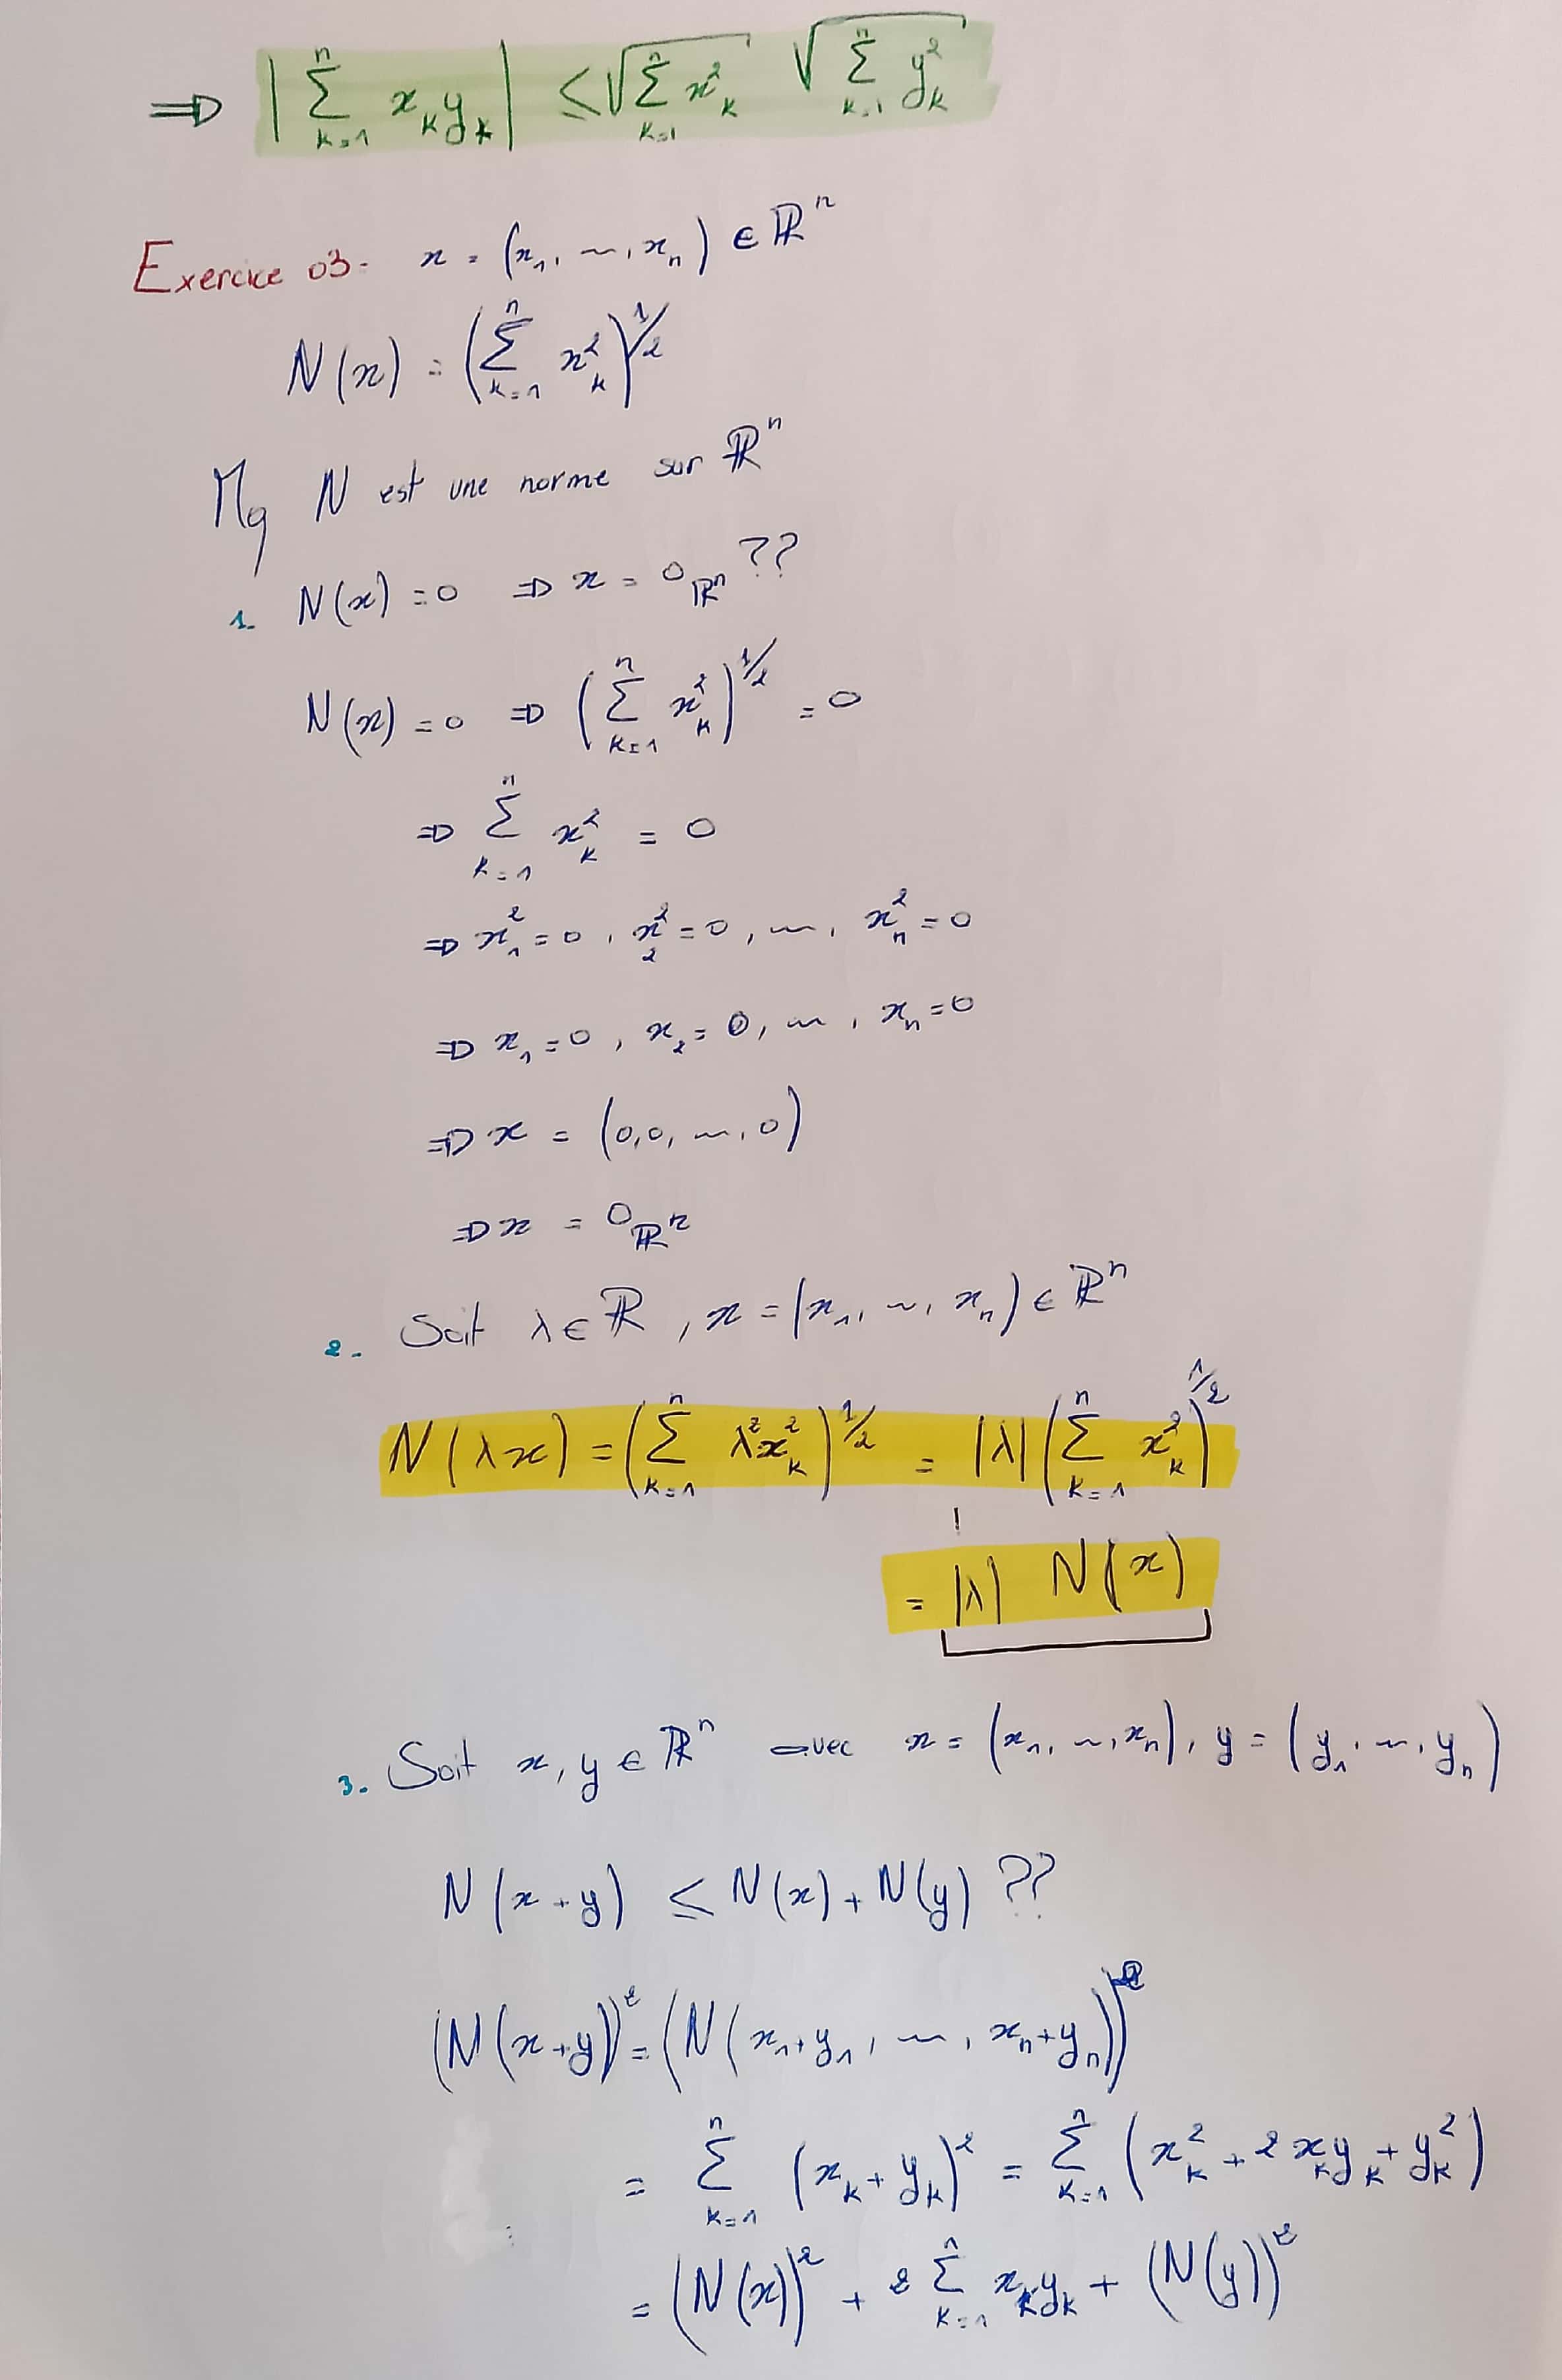 ⇒ |∑_{k=1}^{n} x_k y_k| ≤ √(∑_{k=1}^{n} x_k^2) √(∑_{k=1}^{n} y_k^2)
Exercice 03- x = (x_1, ~, x_n) ∈ ℝ^n
N(x) = (∑_{k=1}^{n} x_k^2)^{1/2}
Mq N est une norme sur ℝ^n
1. N(x) = 0 ⇒ x = 0_{ℝ^n} ??
N(x) = 0 ⇒ (∑_{k=1}^{n} x_k^2)^{1/2} = 0
⇒ ∑_{k=1}^{n} x_k^2 = 0
⇒ x_1^2 = 0, x_2^2 = 0, ~, x_n^2 = 0
⇒ x_1 = 0, x_2 = 0, ~, x_n = 0
⇒ x = (0,0, ~, 0)
⇒ x = 0_{ℝ^n}
2. Soit λ ∈ ℝ, x = (x_1, ~, x_n) ∈ ℝ^n
N(λx) = (∑_{k=1}^{n} λ^2 x_k^2)^{1/2} = |λ| (∑_{k=1}^{n} x_k^2)^{1/2}
= |λ| N(x)
3. Soit x, y ∈ ℝ^n avec x = (x_1, ~, x_n), y = (y_1, ~, y_n)
N(x+y) ≤ N(x) + N(y) ??
(N(x+y))^2 = (N(x_1+y_1, ~, x_n+y_n))^2
= ∑_{k=1}^{n} (x_k + y_k)^2 = ∑_{k=1}^{n} (x_k^2 + 2 x_k y_k + y_k^2)
= (N(x))^2 + 2 ∑_{k=1}^{n} x_k y_k + (N(y))^2